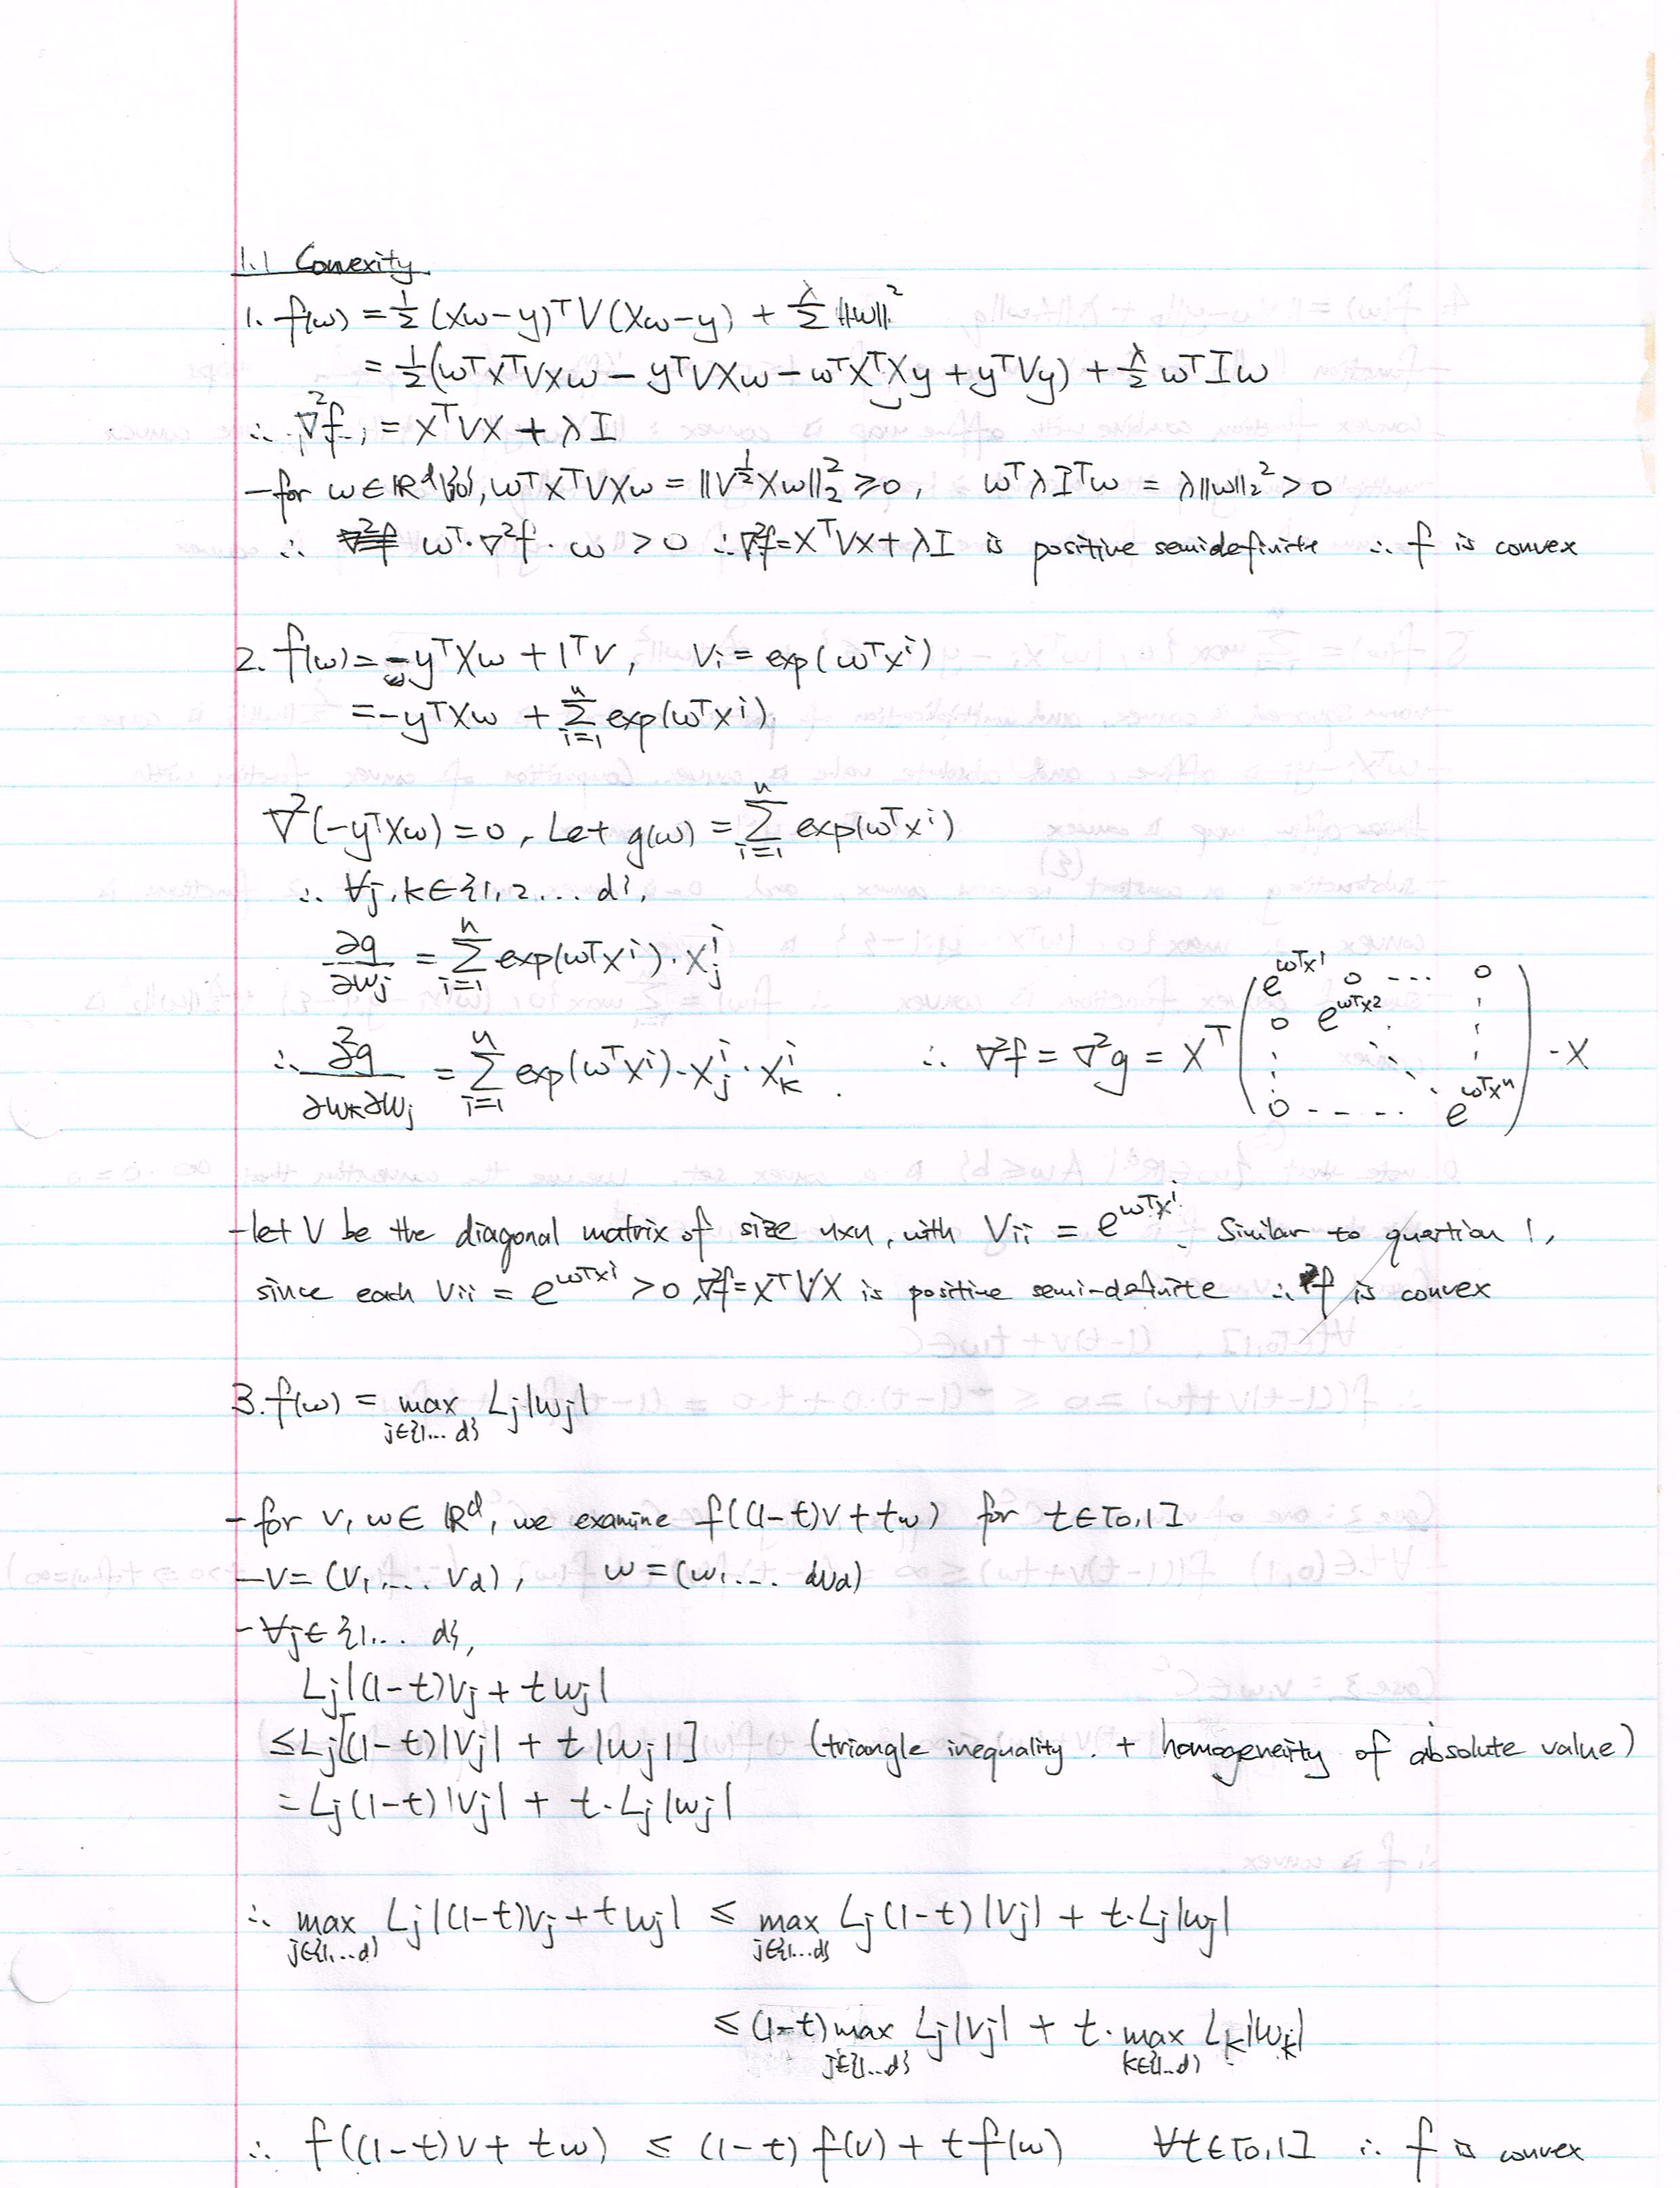 1.1 Convexity
1. f(w) = ½ (Xw-y)ᵀV(Xw-y) + λ/2 ||w||²
= ½(wᵀXᵀVXw - yᵀVXw - wᵀXᵀXy + yᵀVy) + λ/2 wᵀIw
∴ ∇²f = XᵀVX + λI
- for w∈ℝᵈ\{0}, wᵀXᵀVXw = ||V^½Xw||₂² ≥ 0, wᵀλIᵀw = λ||w||₂² > 0
∴ wᵀ·∇²f·w > 0 ∴ ∇²f = XᵀVX + λI is positive semidefinite ∴ f is convex
2. f(w) = -yᵀXw + 1ᵀv, vᵢ = exp(wᵀxⁱ)
= -yᵀXw + Σ_{i=1}^{n} exp(wᵀxⁱ)
∇²(-yᵀXw) = 0, Let g(w) = Σ_{i=1}^{n} exp(wᵀxⁱ)
∴ ∀j,k∈{1,2...d},
∂g/∂wⱼ = Σ_{i=1}^{n} exp(wᵀxⁱ)·xⱼⁱ
∴ ∂²g/∂wₖ∂wⱼ = Σ_{i=1}^{n} exp(wᵀxⁱ)·xⱼⁱ·xₖⁱ. ∴ ∇²f = ∇²g = Xᵀ (e^{wᵀx¹} 0 ... 0 0 e^{wᵀx²} 0 .... e^{wᵀxⁿ}) · X
- let V be the diagonal matrix of size n×n, with Vᵢᵢ = e^{wᵀxⁱ}. Similar to question 1,
since each Vᵢᵢ = e^{wᵀxⁱ} > 0, ∇²f = XᵀVX is positive semi-definite ∴ f is convex
3. f(w) = max_{j∈{1...d}} Lⱼ|wⱼ|
- for v, w∈ℝᵈ, we examine f((1-t)v + tw) for t∈[0,1]
- v = (v₁,... v_d), w = (w₁... w_d)
- ∀j∈{1... d},
Lⱼ|(1-t)vⱼ + twⱼ|
≤ Lⱼ[(1-t)|vⱼ| + t|wⱼ|] (triangle inequality. + homogeneity of absolute value)
= Lⱼ(1-t)|vⱼ| + t·Lⱼ|wⱼ|
∴ max_{j∈{1...d}} Lⱼ|(1-t)vⱼ + twⱼ| ≤ max_{j∈{1...d}} Lⱼ(1-t)|vⱼ| + t·Lⱼ|wⱼ|
≤ (1-t) max_{j∈{1..d}} Lⱼ|vⱼ| + t·max_{k∈{1..d}} Lₖ|wₖ|
∴ f((1-t)v + tw) ≤ (1-t)f(v) + tf(w) ∀t∈[0,1] ∴ f is convex